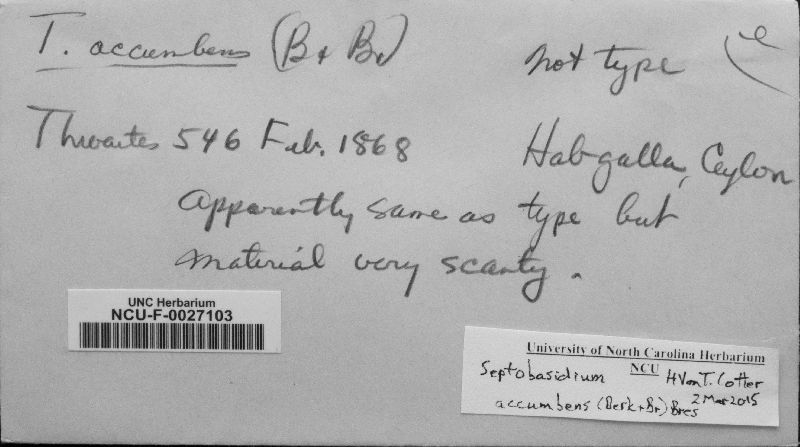 T. accumbens (B & Br)
not type
Thwaites 546 Feb. 1868
Habgalla, Ceylon
Apparently same as type but
material very scanty.
UNC Herbarium
NCU-F-0027103
University of North Carolina Herbarium
NCU
Septobasidium
H Van T. Cotter
2 Mar 2015
accumbens (Berk & Br) Bres